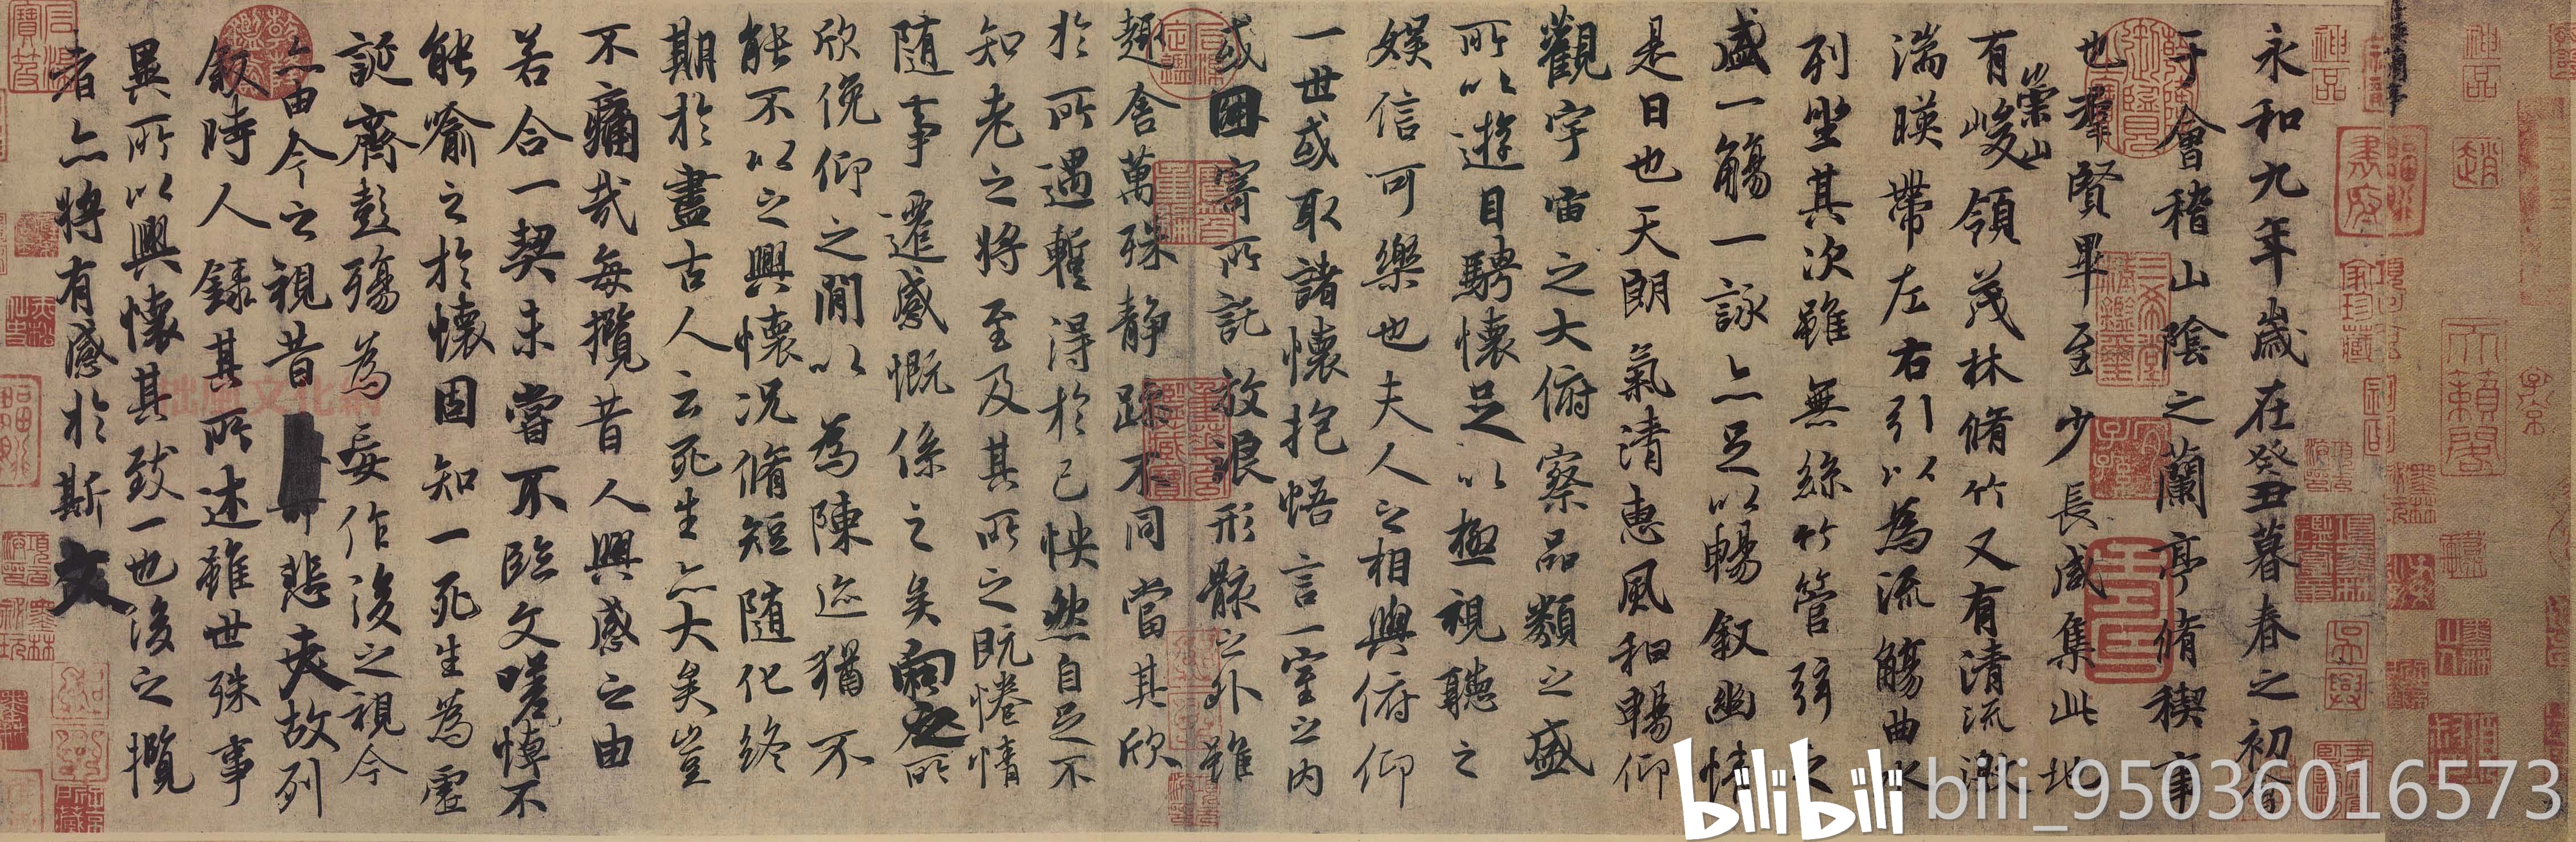 永和九年歲在癸丑暮春之初會
于會稽山陰之蘭亭脩稧事
也羣賢畢至少長咸集此地
有崇山峻領茂林脩竹又有清流激
湍暎帶左右引以為流觴曲水
列坐其次雖無絲竹管弦之
盛一觴一詠亦足以暢敘幽情
是日也天朗氣清惠風和暢仰
觀宇宙之大俯察品類之盛
所以遊目騁懷足以極視聽之
娛信可樂也夫人之相與俯仰
一世或取諸懷抱悟言一室之內
或因寄所託放浪形骸之外雖
趣舍萬殊靜躁不同當其欣
於所遇暫得於己怏然自足不
知老之將至及其所之既惓情
隨事遷感慨係之矣向之所
欣俛仰之閒以為陳迹猶不
能不以之興懷況脩短隨化終
期於盡古人云死生亦大矣豈
不痛哉每攬昔人興感之由
若合一契未嘗不臨文嗟悼不
能喻之於懷固知一死生為虛
誕齊彭殤為妄作後之視今
亦由今之視昔悲夫故列
敘時人錄其所述雖世殊事
異所以興懷其致一也後之攬
者亦將有感於斯文
神品
bilibili bili_95036016573